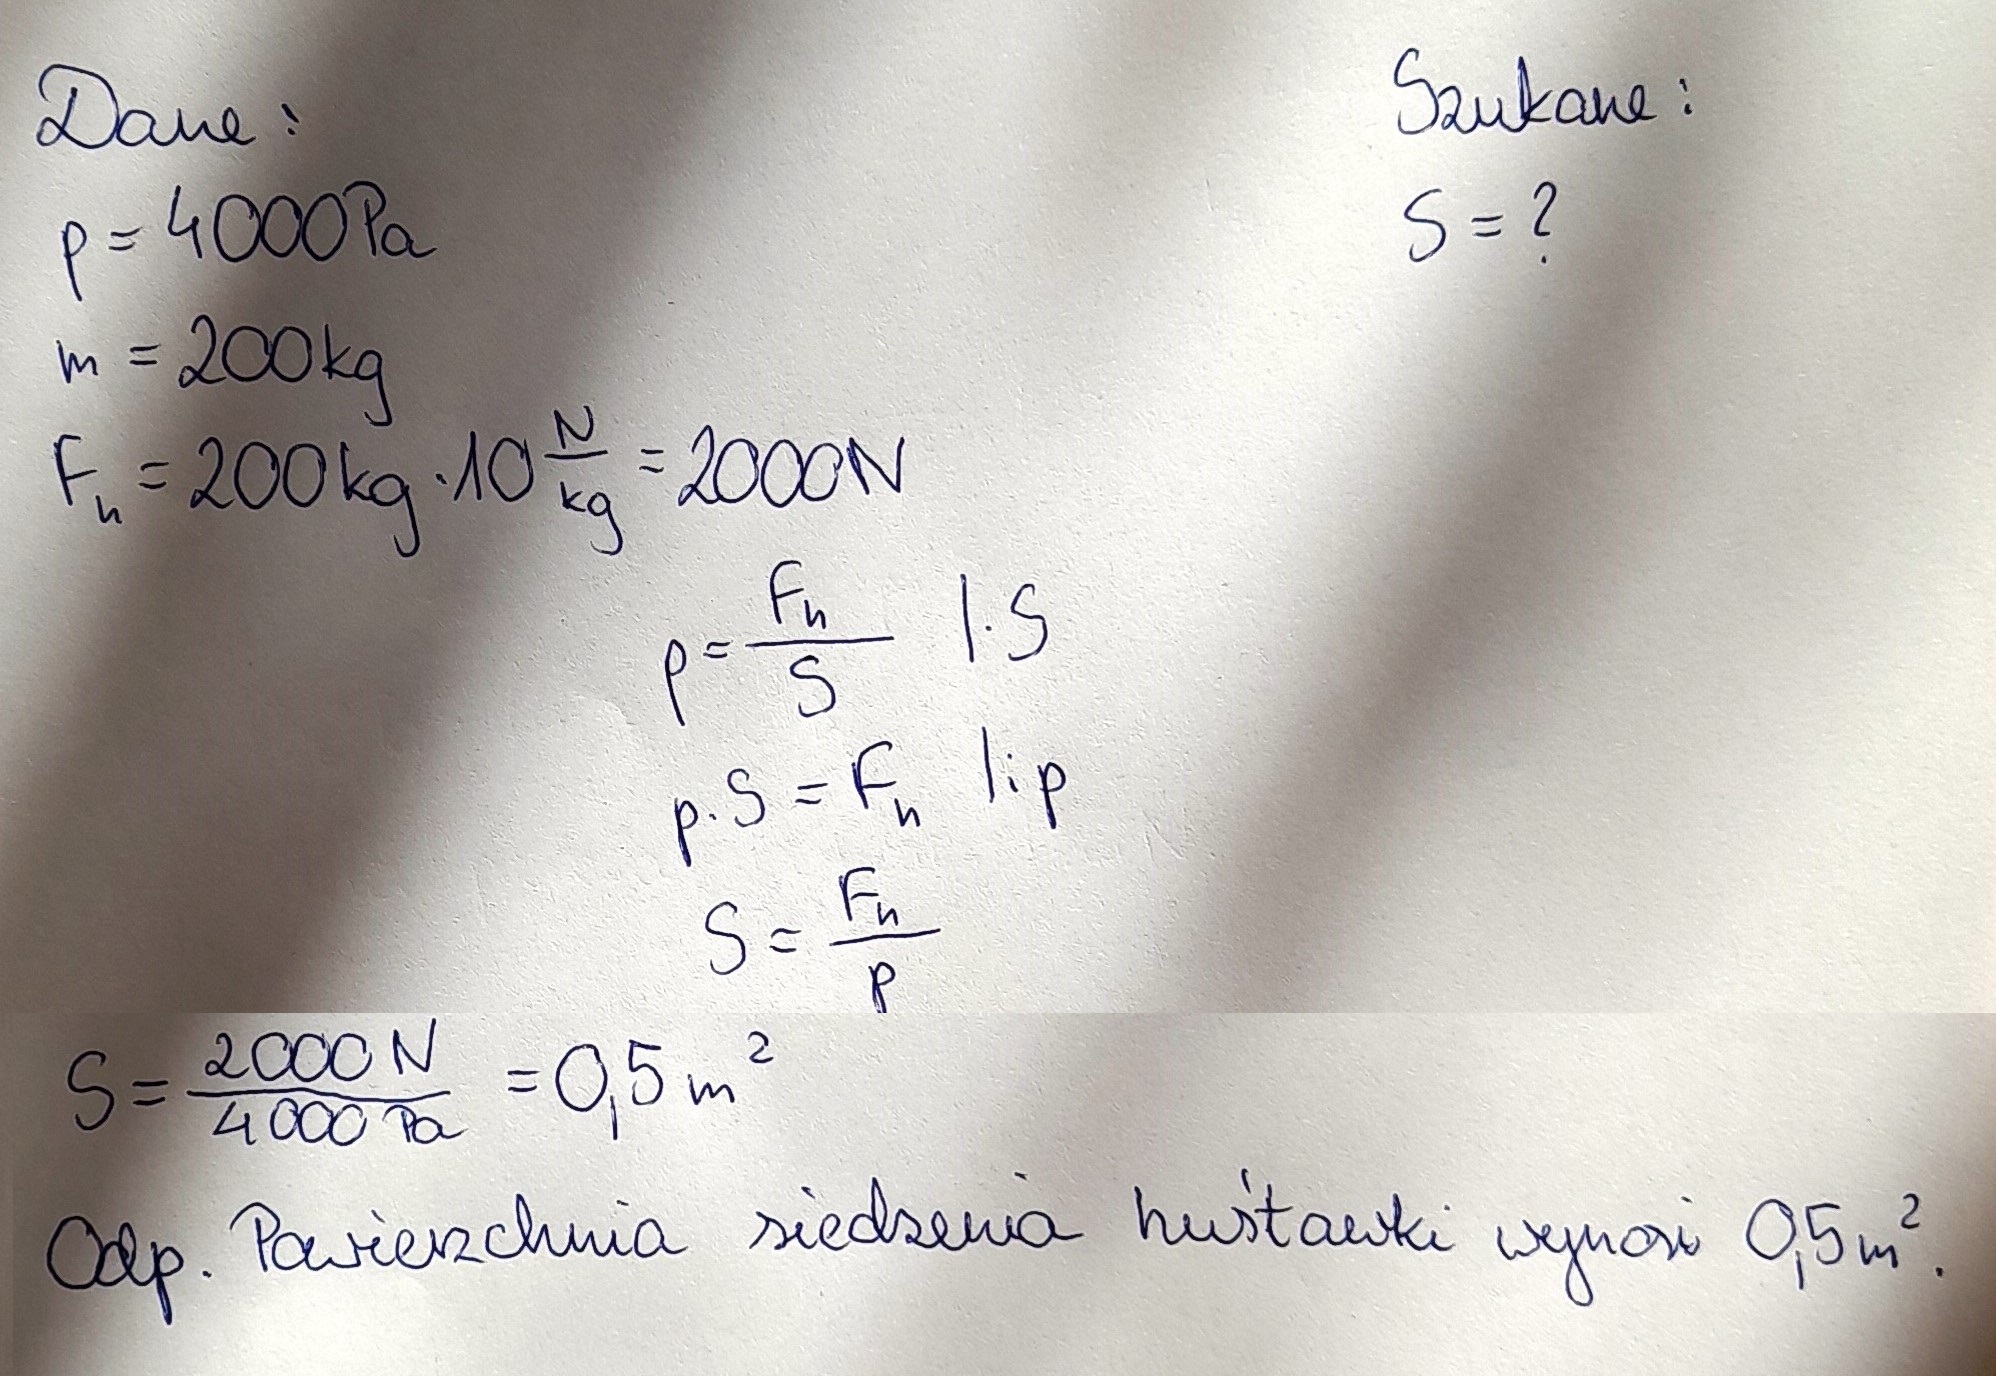 Dane: Szukane:
p = 4000Pa S = ?
m = 200kg
Fₙ = 200kg · 10 N/kg = 2000N
p = Fₙ/S |·S
p·S = Fₙ |:p
S = Fₙ/p
S = 2000N/4000Pa = 0,5m²
Odp. Powierzchnia siedzenia huśtawki wynosi 0,5m².